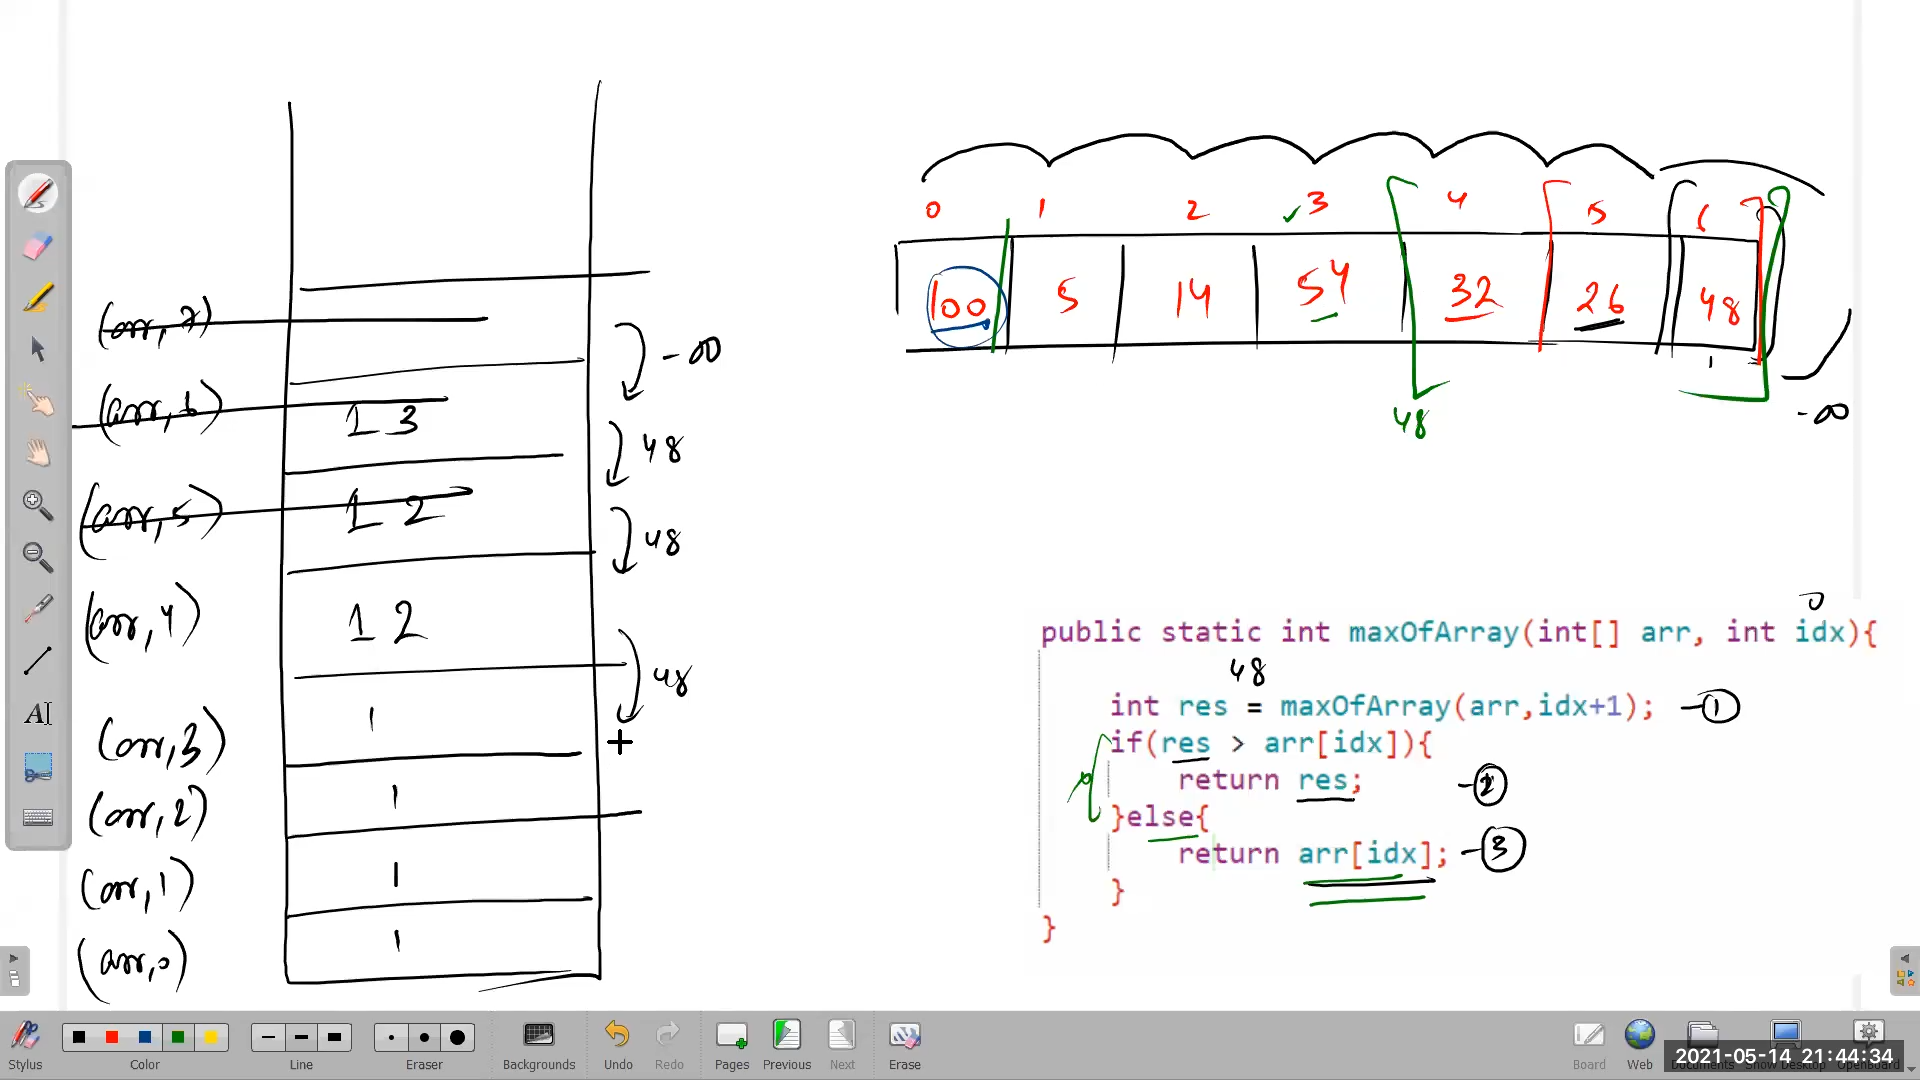 0 1 2 3 4 5 6
100 5 14 54 32 26 48
48
-∞
(arr,7)
-∞
(arr,6) 1 3
48
(arr,5) 1 2
48
(arr,4) 1 2
48
(arr,3) 1
(arr,2) 1
(arr,1) 1
(arr,0) 1
0
public static int maxOfArray(int[] arr, int idx){
48
int res = maxOfArray(arr,idx+1); -1
if(res > arr[idx]){
return res; -2
}else{
return arr[idx]; -3
}
}
Stylus
Color
Line
Eraser
Backgrounds
Undo
Redo
Pages
Previous
Next
Erase
Board
Web
Documents
Show Desktop
OpenBoard
2021-05-14 21:44:34